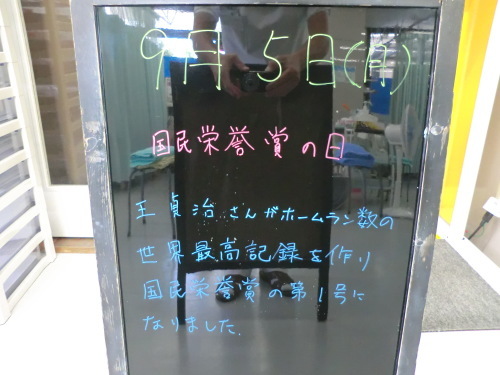 9月5日(月)
国民栄誉賞の日
王貞治さんがホームラン数の
世界最高記録を作り
国民栄誉賞の第1号に
なりました.